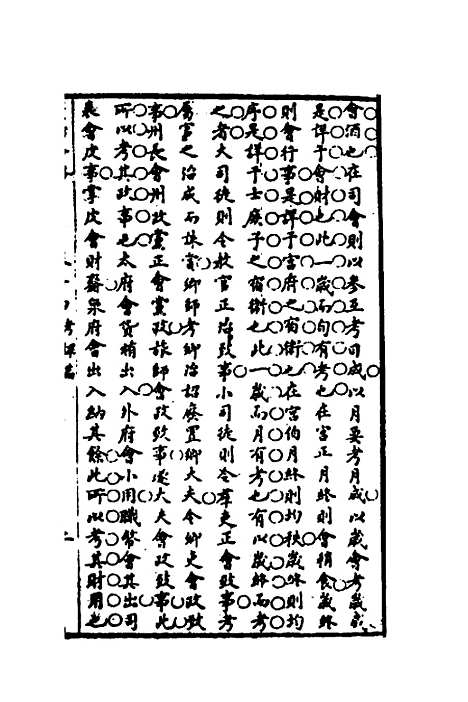 會酒也在司會則以參互考日成以月要考月成以歲會考歲成
是詳于會財也此一歲而旬有考也在宮正月終則會稍食歲終
則會行事是詳于宮府之宿衛也在宮伯月終則均秩歲終則均
序是詳于士庶子之宿衛也此一歲而月有考也有以歲終而考
之者大司徒則令教官正治致事小司徒則令羣吏正會致事考
屬官之治成而誅賞鄉師考鄉治詔廢置鄉大夫令鄉吏會政致
事州長會州政黨正會黨政族師會政致事遂大夫會政致事此
所以考其政事也太府會貨賄出入外府會小用職幣會其出司
裘會皮事掌皮會財齎泉府會出入納其餘此所以考其財用也